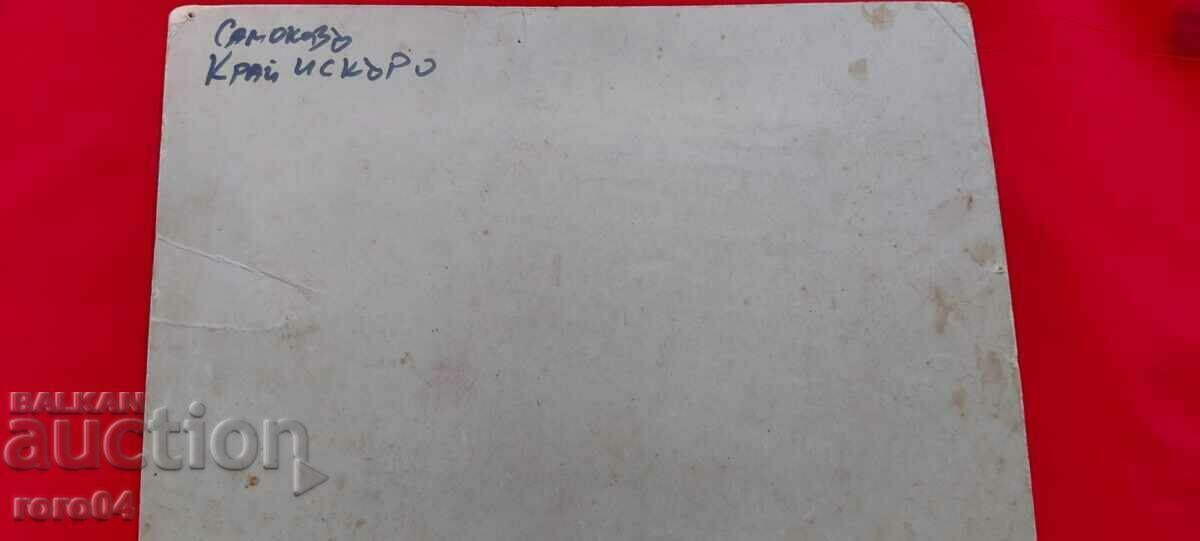 Самоковъ
Край искъро
BALKAN
auction
roro04